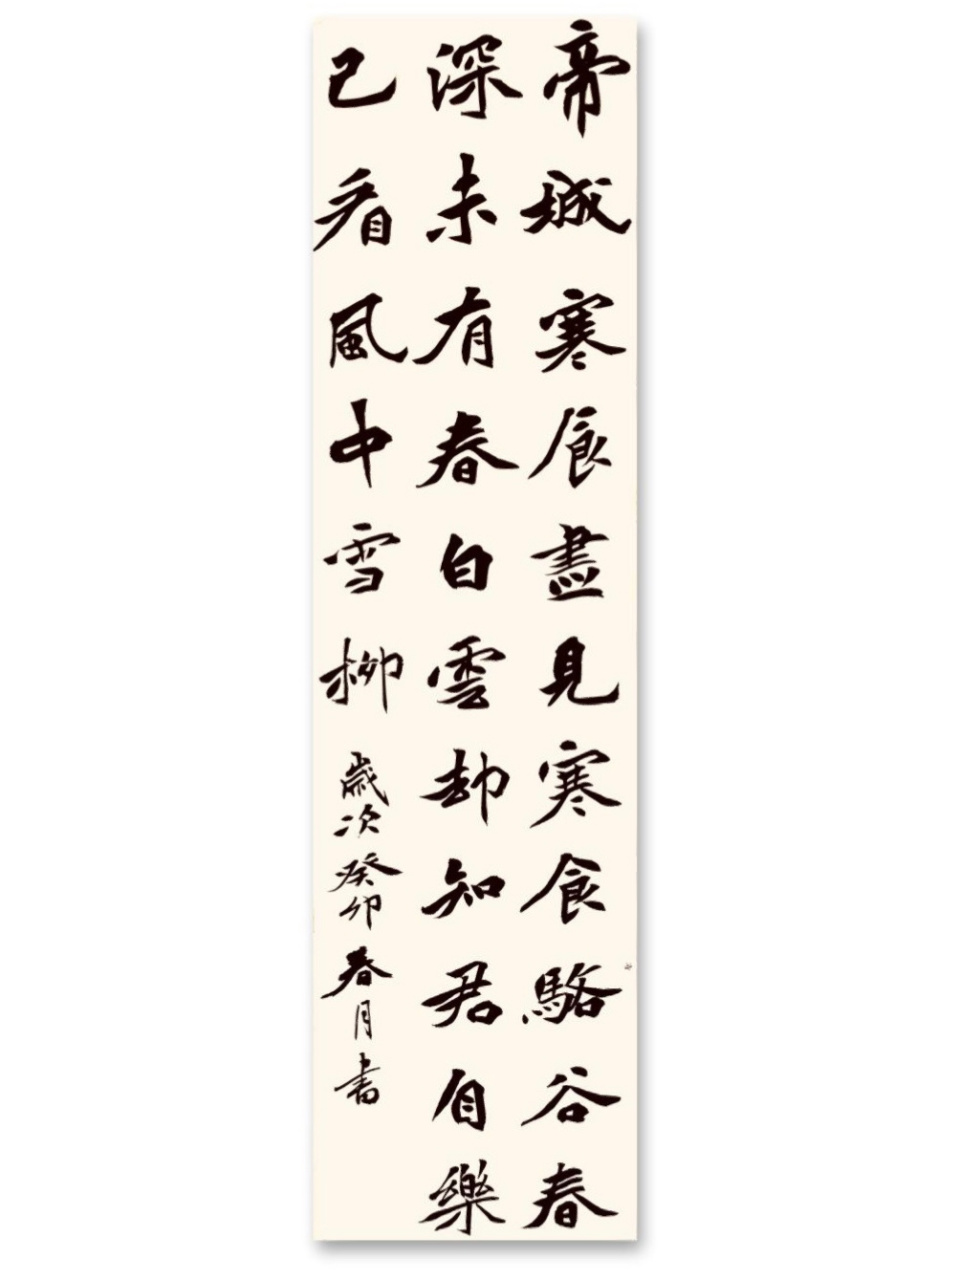 帝城寒食盡見寒食駱谷春
深未有春白雲却知君自樂
已看風中雪柳
歲次癸卯春月書